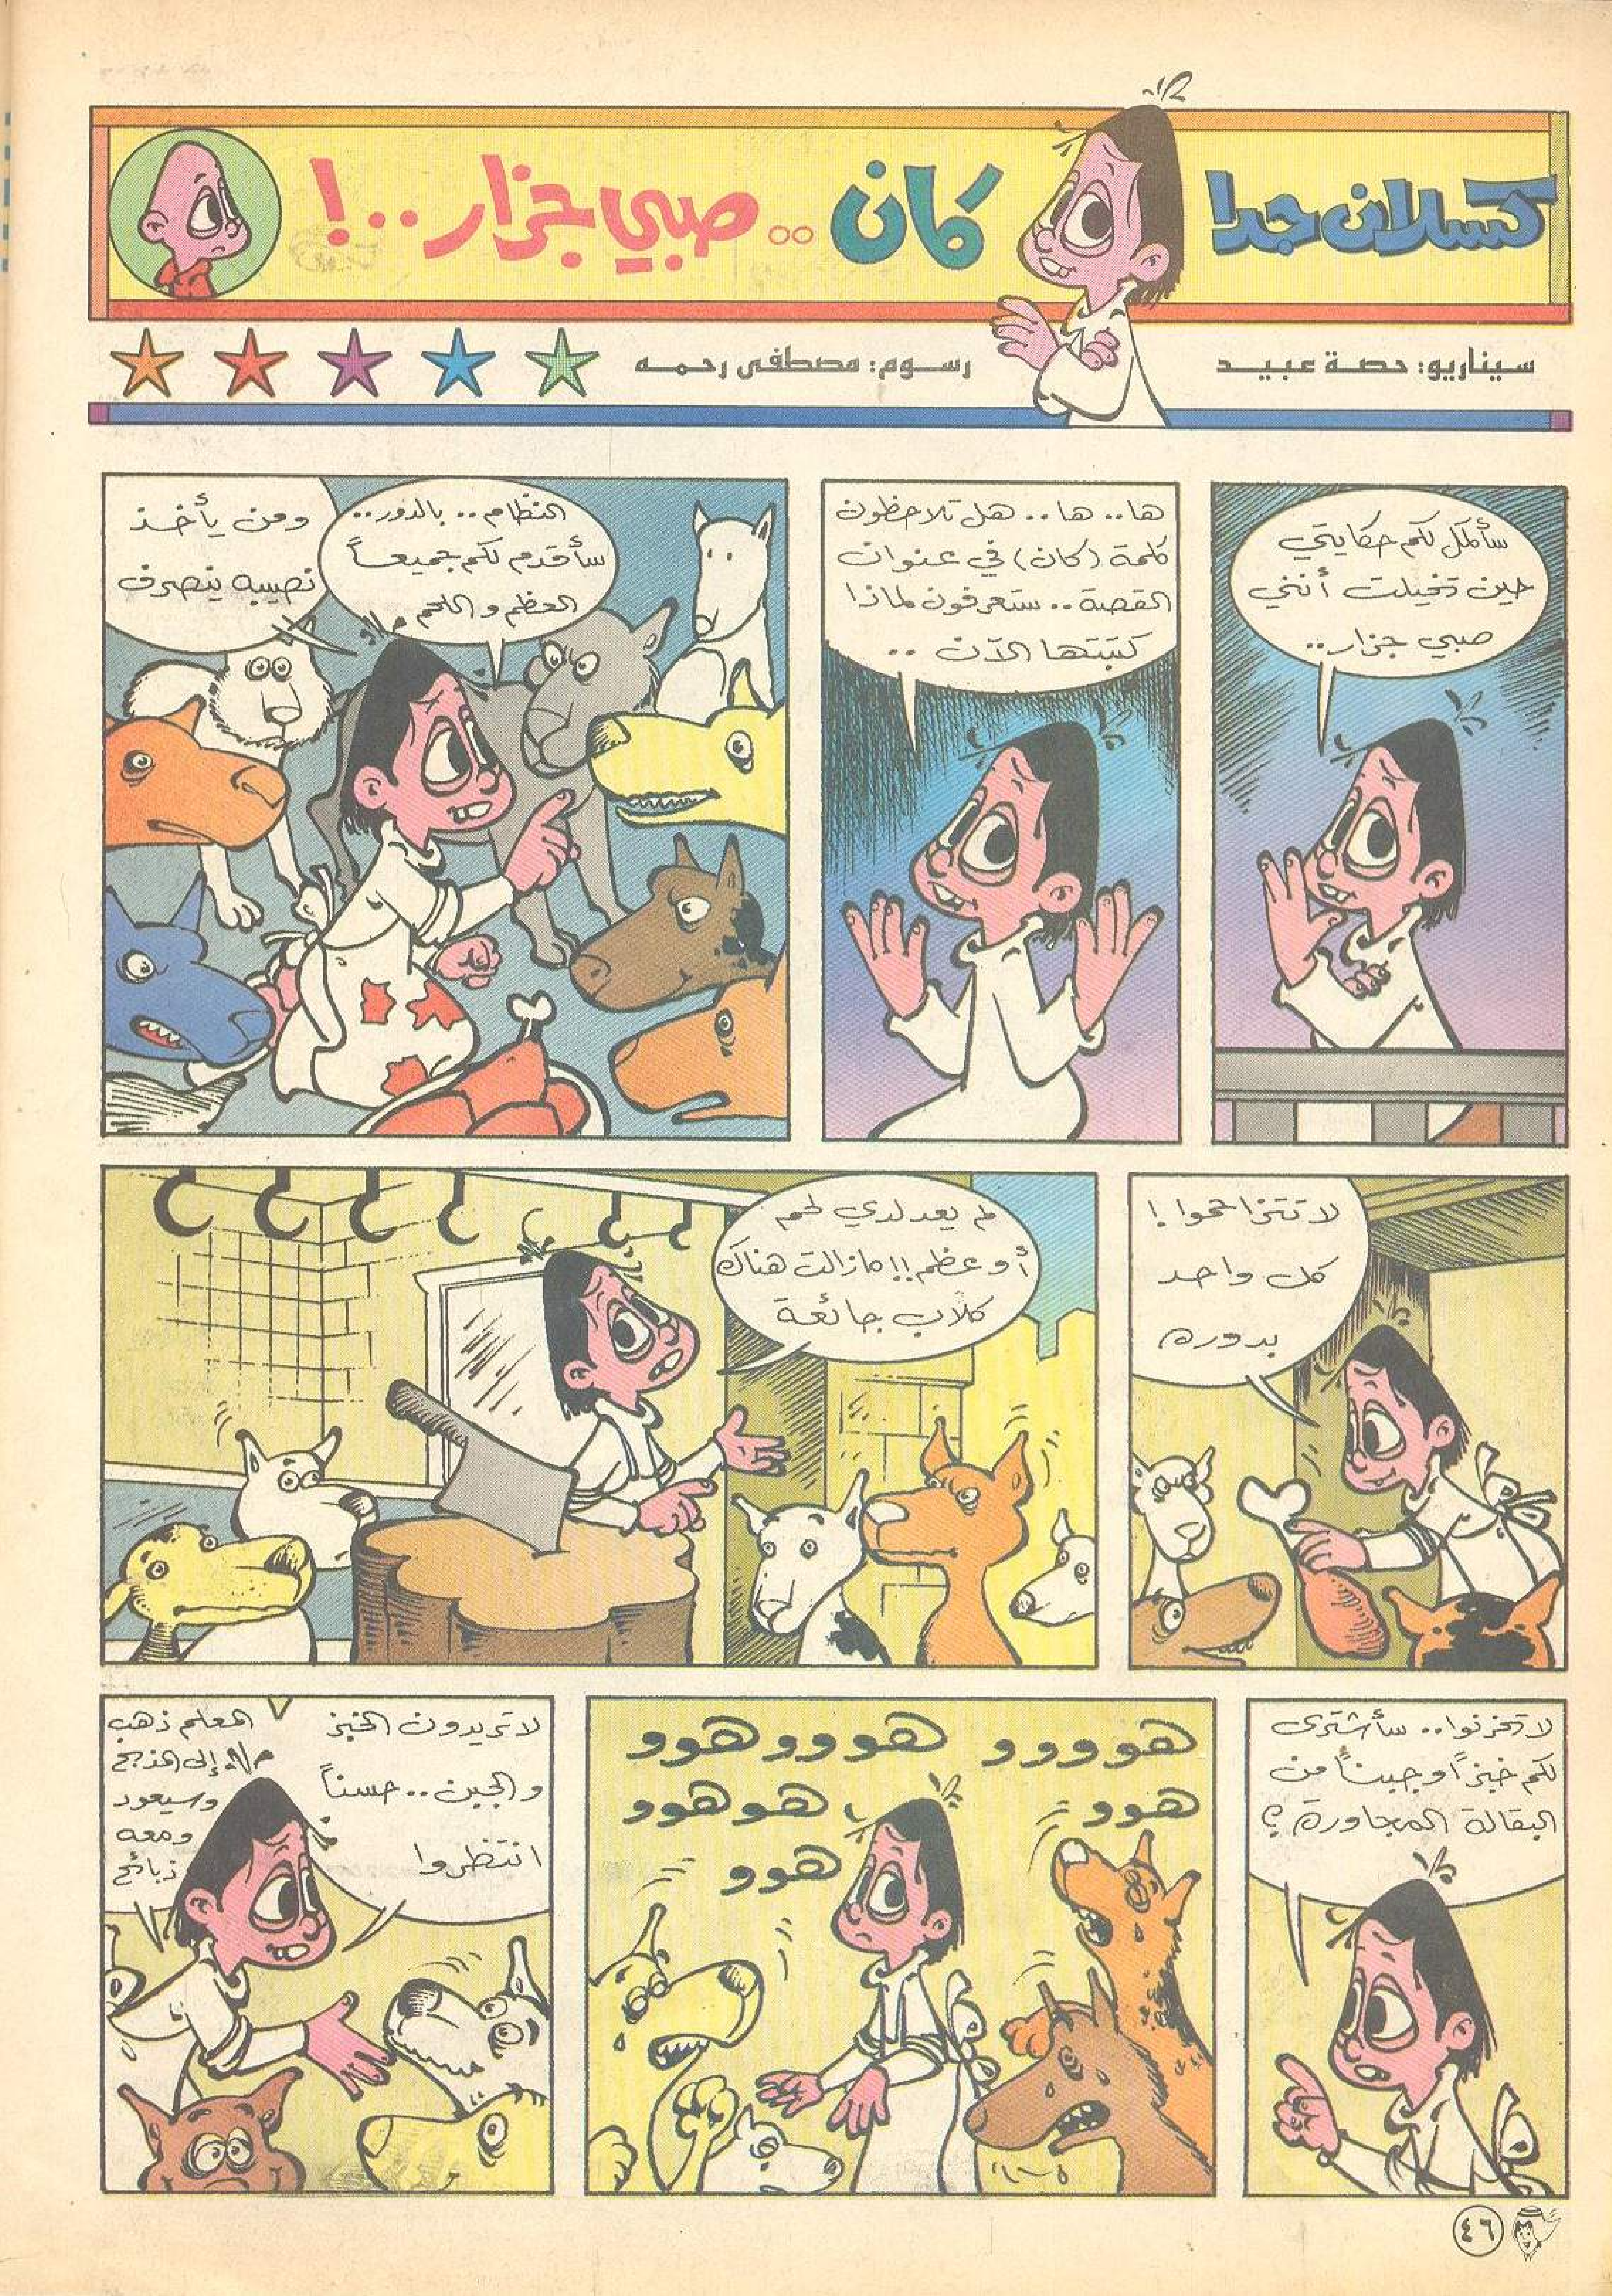 كسلان جدا
كان .. صبي جزار ..!
سيناريو: حصة عبيد
رسوم: مصطفى رحمه
سأكمل لكم حكايتي
حين تخيلت أنني
صبي جزار..
ها.. ها.. هل تلاحظون
كلمة (كان) في عنوان
القصة.. ستعرفون لماذا
كتبتها الآن ..
النظام.. بالدور..
سأقدم لكم جميعاً
العظم و اللحم
ومن يأخذ
نصيبه ينصرف
لا تتزاحموا!
كل واحد
بدوره
لم يعد لدي لحم
أو عظم!! مازالت هناك
كلاب جائعة
لا تحزنوا.. سأشترى
لكم خبزاً و جبناً من
البقالة المجاورة؟
هوووو هوووهوو
هوو هوهوو
هوو
لا تريدون الخبز
و الجبن.. حسناً
انتظروا
المعلم ذهب
إلى المذبح
وسيعود
ومعه
ذبائح
٤٦